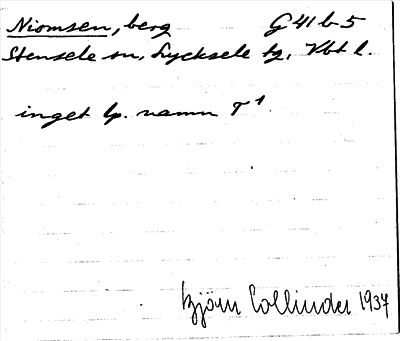 Niomsen, berg G 41 b 5
Stensele sn, Lycksele tg, Vbt l.
inget lp. namn T¹
Björn Collinder 1937